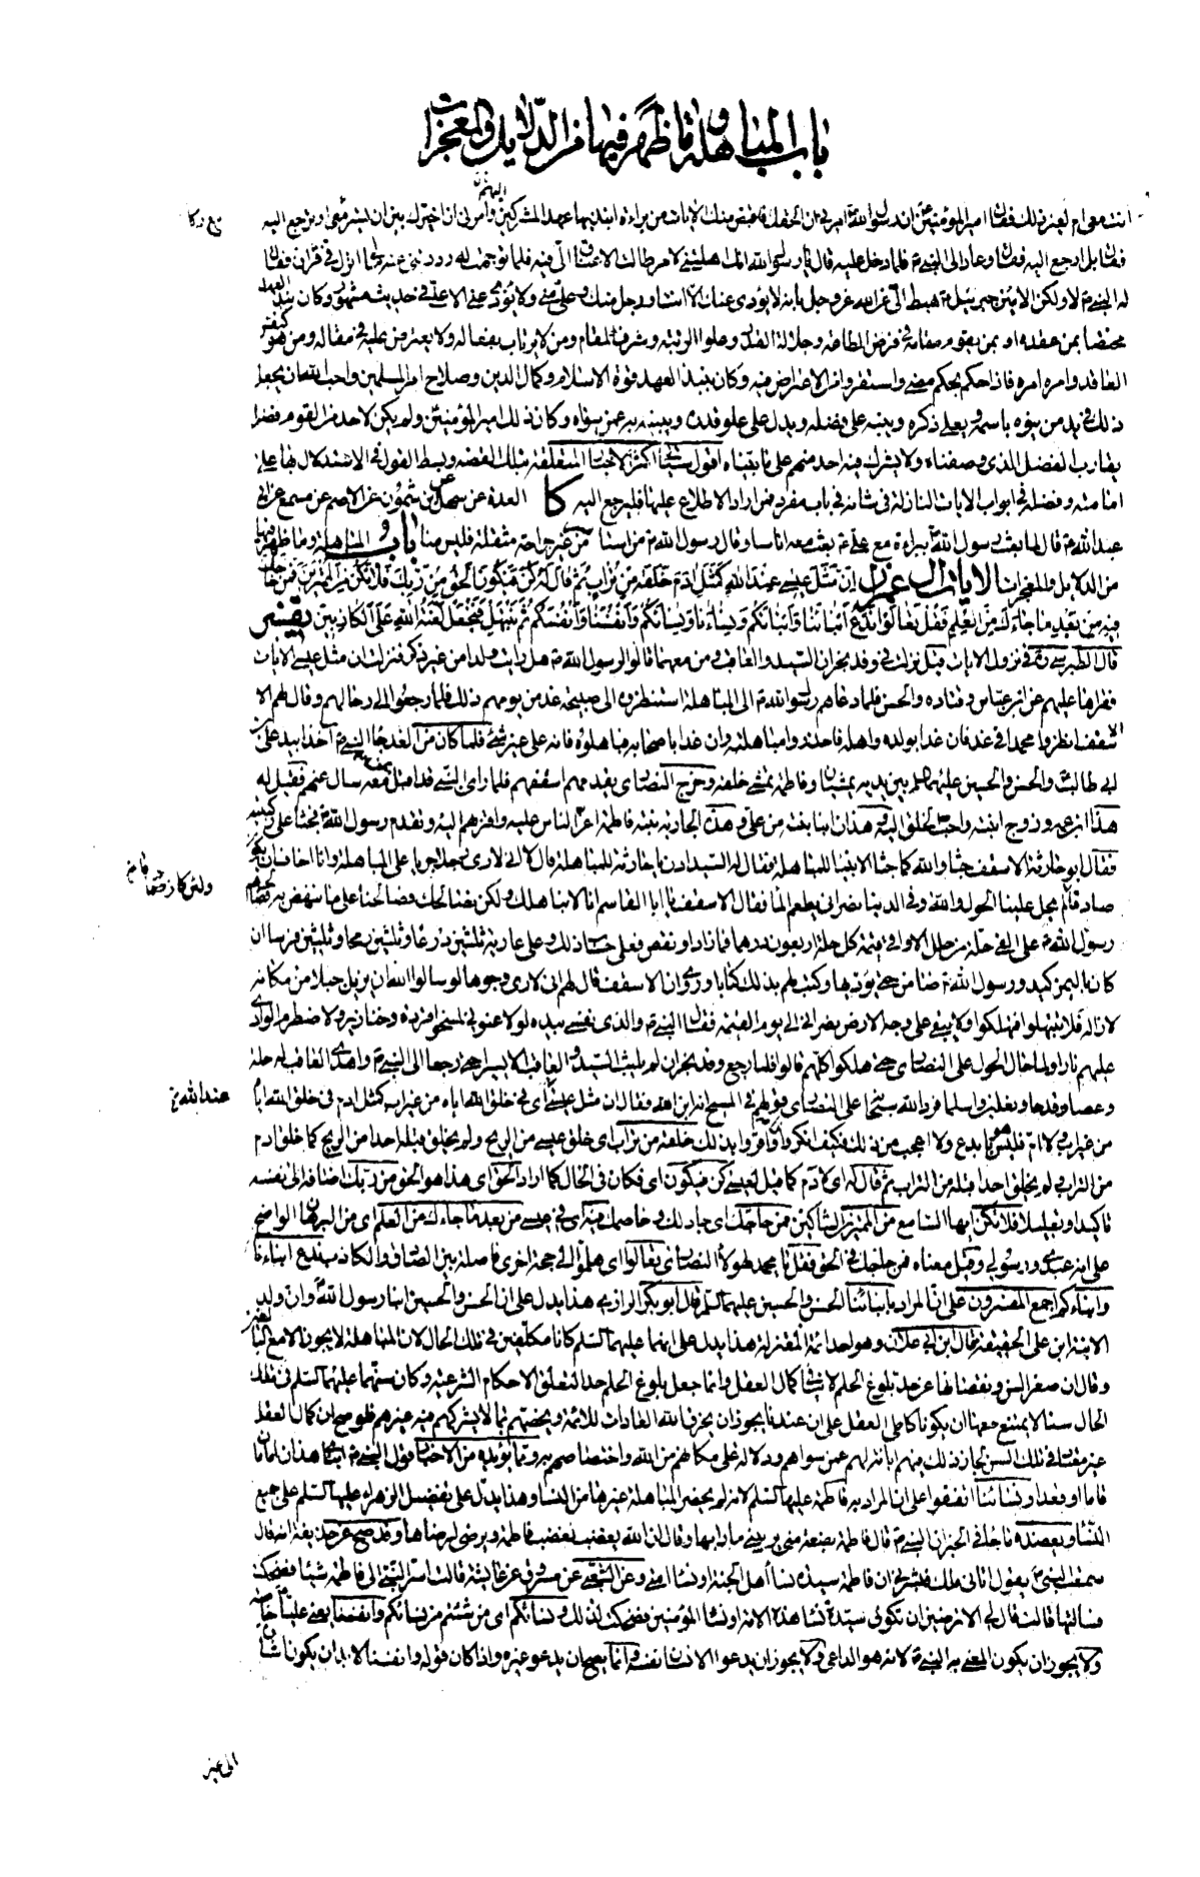 باب المباهلة وما ظهر فيها من الدلايل والمعجزات
انت معي ام لغير ذلك فقال امير المؤمنين ع ان رسول الله ص امرني ان الحقك فاقبض منك الايات من براءة وانبذ بها عهد المشركين اليهم وامرني ان اخيرك بين ان تسير معي او ترجع اليه
فقال بل ارجع اليه فقال وعاد الى النبي ص فلما دخل عليه قال يا رسول الله انك اهلتني لامر طالت الاعناق الي فيه فلما توجهت له رددتني عنه مالي انزل في قران فقال
له النبي ص لا ولكن الامين جبرئيل ع هبط الي عن الله عز وجل بانه لا يؤدي عنك الا انت او رجل منك وعلي مني ولا يؤدي عني الا علي في حديث مشهور وكان نبذ العهد
مختصا بمن عقده او بمن يقوم مقامه في فرض الطاعة وجلالة القدر وعلو الرتبة وشرف المقام ومن لا يرتاب بفعاله ولا يعترض عليه في مقاله ومن هو كنفس
العاقد وامره امره فاذا حكم بحكم مضى واستقر وامن الاعتراض فيه وكان بنبذ العهد قوة الاسلام وكمال الدين وصلاح امر المسلمين واحب الله ان يجعل
ذلك في يد من ينوه باسمه ويعلي ذكره وينبه على فضله ويدل على علو قدره ويبينه به عمن سواه وكان ذلك امير المؤمنين ولم يكن لاحد من القوم فضل
يقارب الفضل الذي وصفناه ولا يشركه فيه احد منهم على ما بيناه اقول سيأتي اكثر الاخبار المتعلقة بتلك القصة وبسط القول في الاستدلال بها على
امامته وفضله في ابواب الايات النازلة في شانه في باب مفرد من اراد الاطلاع عليها فليرجع اليه كا العدة عن سهل عن ابن شمون عن الاصم عن مسمع عن ابي
عبدالله ع قال لما بعث رسول الله ص ببراءة مع علي ع بعث معه اناسا وقال رسول الله ص من استاسر من غير جراحة مثقلة فليس منا باب المباهلة وما ظهر فيها
من الدلايل والمعجزات الايات ال عمران ان مثل عيسى عند الله كمثل ادم خلقه من تراب ثم قال له كن فيكون الحق من ربك فلا تكن من الممترين فمن حاجك
فيه من بعد ما جاءك من العلم فقل تعالوا ندع ابناءنا وابناءكم ونساءنا ونساءكم وانفسنا وانفسكم ثم نبتهل فنجعل لعنة الله على الكاذبين تفسير
قال الطبرسي ره في نزول الايات قيل نزلت في وفد نجران السيد والعاقب ومن معهما قالوا لرسول الله ص هل رايت ولدا من غير ذكر فنزلت ان مثل عيسى الايات
فقراها عليهم عن ابن عباس وقتاده والحسن فلما دعاهم رسول الله ص الى المباهلة استنظروه الى صبيحة غد من يومهم ذلك فلما رجعوا الى رحالهم قال لهم
الاسقف انظروا محمدا في غد فان غدا بولده واهله فاحذروا مباهلته وان غدا باصحابه فباهلوه فانه على غير شئ فلما كان من الغد جاء النبي ص اخذا بيد علي بن
ابي طالب والحسن والحسين عليهما السلم بين يديه يمشيان وفاطمة تمشي خلفه وخرج النصارى يقدمهم اسقفهم فلما راى النبي قد اقبل بمن معه سال عنهم فقيل له
هذا ابن عمه وزوج ابنته واحب الخلق اليه وهذان ابنا بنته من علي وهذه الجارية بنته فاطمة اعز الناس عليه واقربهم اليه وتقدم رسول الله ص فجثا على ركبتيه
فقال ابو حارثة الاسقف جثا والله كما جثا الانبياء للمباهلة فقال له السيد ادن يا حارثة للمباهلة قال لا اني لارى رجلا جريا على المباهلة وانا اخاف ان يكون
صادقا لم يحل علينا الحول والله وفي الدنيا نصراني يطعم الماء فقال الاسقف يا ابا القاسم انا لا نباهلك ولكن نصالحك فصالحنا على ما ننهض به فصالحهم
رسول الله ص على الفي حلة من حلل الاواقي قيمة كل حلة اربعون درهما فما زاد او نقص فعلى حساب ذلك وعلى عارية ثلثين درعا وثلثين رمحا وثلثين فرسا ان
كان باليمن كيد ورسول الله ص ضامن حتى يؤديها وكتب لهم بذلك كتابا وروي ان الاسقف قال لهم اني لارى وجوها لو سالوا الله ان يزيل جبلا من مكانه
لازاله فلا تبتهلوا فتهلكوا ولا يبقى على وجه الارض نصراني الى يوم القيمة فقال النبي ص والذي نفسي بيده لو لاعنوني لمسخوا قردة وخنازير ولاضطرم الوادي
عليهم نارا ولما حال الحول على النصارى حتى هلكوا كلهم قالوا فلما رجع وفد نجران لم يلبث السيد والعاقب الا يسيرا حتى رجعا الى النبي ص واهدى العاقب له حلة
وعصا وقدحا ونعلين واسلما فرد الله سبحانه على النصارى قولهم في المسيح انه ابن الله فقال ان مثل عيسى اي في خلق الله اياه من غير اب كمثل ادم في خلق الله اياه
من غير اب ولا ام فليس هو بابدع ولا اعجب من ذلك فكيف انكروا واقروا بذلك خلقه من تراب اي خلق عيسى من الريح ولم يخلق قبله احدا من الريح كما خلق ادم
من التراب ولم يخلق احدا قبله من التراب ثم قال له اي لادم كما قيل لعيسى كن فيكون اي فكان في الحال كما اراد الحق اي هذا هو الحق من ربك اضافه الى نفسه
تاكيدا وتعليلا فلا تكن ايها السامع من الممترين الشاكين فمن حاجك اي جادلك وخاصمك فيه اي في عيسى من بعد ما جاءك من العلم اي من البرهان الواضح
على انه عبدي ورسولي وقيل معناه فمن حاجك في الحق فقل يا محمد لهؤلاء النصارى تعالوا اي هلموا الى حجة اخرى فاصلة بين الصادق والكاذب ندع ابناءنا
وابناءكم اجمع المفسرون على ان المراد بابنائنا الحسن والحسين عليهما السلم قال ابو بكر الرازي هذا يدل على ان الحسن والحسين ابنا رسول الله ص وان ولد
الابنة ابن على الحقيقة وقال ابن ابي علان وهو احد ائمة المعتزلة هذا يدل على انهما عليهما السلم كانا مكلفين في تلك الحال لان المباهلة لا يجوز الا مع البالغين
وقال ان صغر السن ونقصانها عن حد بلوغ الحلم لا ينافي كمال العقل وانما جعل بلوغ الحلم حدا لتعلق الاحكام الشرعية وكان سنهما عليهما السلم في تلك
الحال سنا لا يمتنع معها ان يكونا كاملي العقل على ان عندنا يجوز ان يخرق الله العادات للائمة ويخصهم بما لا يشركهم فيه غيرهم فلو صح ان كمال العقل
غير معتاد في تلك السن لجاز ذلك فيهم ابانة لهم عمن سواهم ودلالة على مكانهم من الله واختصاصهم به ومما يؤيده من الاخبار قول النبي ص ابناي هذان امامان
قاما او قعدا ونساءنا اتفقوا على ان المراد به فاطمة عليها السلم لانه لم يحضر المباهلة غيرها من النساء وهذا يدل على تفضيل الزهراء عليها السلم على جميع
النساء ويعضده ما جاء في الخبر ان النبي ص قال فاطمة بضعة مني يريبني ما رابها وقال ان الله يغضب لغضب فاطمة ويرضى لرضاها وقد صح عن حذيفة انه قال
سمعت النبي ص يقول اتاني ملك فبشرني ان فاطمة سيدة نساء اهل الجنة او نساء امتي وعن الشعبي عن مسروق عن عايشة قالت اسر النبي الى فاطمة شيئا فضحكت
فسالتها قالت قال لي الا ترضين ان تكوني سيدة نساء هذه الامة او نساء المؤمنين فضحكت لذلك ونساءكم اي من شئتم من نسائكم وانفسنا يعني عليا خاصة
ولا يجوز ان يكون المعني به النبي ص لانه هو الداعي ولا يجوز ان يدعو الانسان نفسه وانما يصح ان يدعو غيره واذا كان قوله وانفسنا لابد ان يكون اشارة
الى غير
ولئن كان صادقا
عند الله